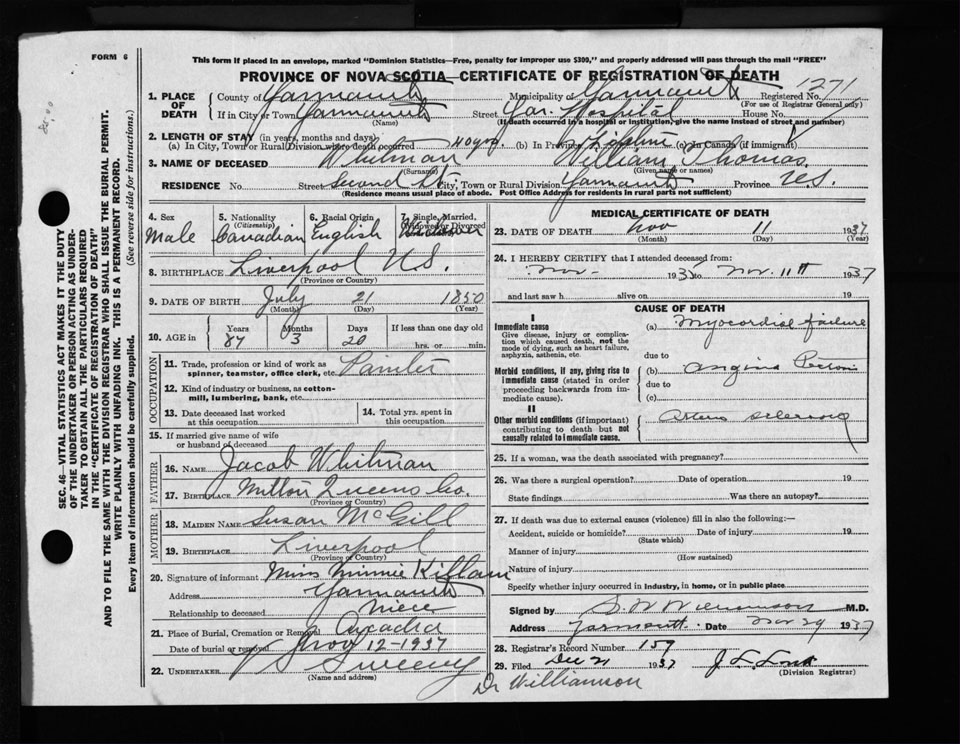 FORM 6
This form if placed in an envelope, marked "Dominion Statistics—Free, penalty for improper use $300," and properly addressed will pass through the mail "FREE"
PROVINCE OF NOVA SCOTIA—CERTIFICATE OF REGISTRATION OF DEATH
1. PLACE OF DEATH County of Yarmouth Municipality of Yarmouth Registered No. 1271
(For use of Registrar General only)
If in City or Town Yarmouth Street Yar. Hospital House No.
(Name) (If death occurred in a hospital or institution, give the name instead of street and number)
2. LENGTH OF STAY (in years, months and days)
(a) In City, Town or Rural Division where death occurred 40 yrs. (b) In Province Lifetime (c) In Canada (if immigrant)
3. NAME OF DECEASED Whitman William Thomas
(Surname) (Given name or names)
RESIDENCE No. Street Second St. City, Town or Rural Division Yarmouth Province N.S.
(Residence means usual place of abode. Post Office Address for residents in rural parts not sufficient)
SEC. 46—VITAL STATISTICS ACT MAKES IT THE DUTY
OF THE UNDERTAKER OR PERSON ACTING AS UNDER-
TAKER TO OBTAIN ALL THE PARTICULARS REQUIRED
IN THE "CERTIFICATE OF REGISTRATION OF DEATH"
AND TO FILE THE SAME WITH THE DIVISION REGISTRAR WHO SHALL ISSUE THE BURIAL PERMIT.
WRITE PLAINLY WITH UNFADING INK. THIS IS A PERMANENT RECORD.
Every item of information should be carefully supplied. (See reverse side for instructions.)
4. Sex 5. Nationality (Citizenship) 6. Racial Origin 7. Single, Married, Widowed or Divorced
Male Canadian English Widower
8. BIRTHPLACE Liverpool N.S.
(Province or Country)
9. DATE OF BIRTH July 21 1850
(Month) (Day) (Year)
10. AGE in Years Months Days If less than one day old
87 3 20 hrs. or min.
OCCUPATION
11. Trade, profession or kind of work as spinner, teamster, office clerk, etc. Painter
12. Kind of industry or business, as cotton-mill, lumbering, bank, etc.
13. Date deceased last worked at this occupation
14. Total yrs. spent in this occupation
15. If married give name of wife or husband of deceased
FATHER
16. NAME Jacob Whitman
17. BIRTHPLACE Milton Queens Co.
(Province or Country)
MOTHER
18. MAIDEN NAME Susan McGill
19. BIRTHPLACE Liverpool
(Province or Country)
20. Signature of informant Miss Minnie Killam
Address Yarmouth
Relationship to deceased Niece
21. Place of Burial, Cremation or Removal Arcadia
Date of burial or removal Nov 12-1937
22. UNDERTAKER V S Sweeny
(Name and address)
MEDICAL CERTIFICATE OF DEATH
23. DATE OF DEATH Nov 11 1937
(Month) (Day) (Year)
24. I HEREBY CERTIFY that I attended deceased from:
Nov. 1937 to Nov. 11th 1937
and last saw h alive on 19
CAUSE OF DEATH
I
Immediate cause (a) Myocardial failure
Give disease, injury or complication which caused death, not the mode of dying, such as heart failure, asphyxia, asthenia, etc.
due to
Morbid conditions, if any, giving rise to immediate cause (stated in order proceeding backwards from immediate cause). (b) Angina Pectoris
due to
(c)
II
Other morbid conditions (if important) contributing to death but not causally related to immediate cause. Arterio sclerosis
25. If a woman, was the death associated with pregnancy?
26. Was there a surgical operation? Date of operation 19
State findings Was there an autopsy?
27. If death was due to external causes (violence) fill in also the following:—
Accident, suicide or homicide? Date of injury 19
(State which)
Manner of injury
(How sustained)
Nature of injury
Specify whether injury occurred in industry, in home, or in public place
Signed by S. W. Williamson M.D.
Address Yarmouth Date Nov 29 1937
28. Registrar's Record Number 159
29. Filed Dec 21 1937
(Division Registrar)
Dr Williamson